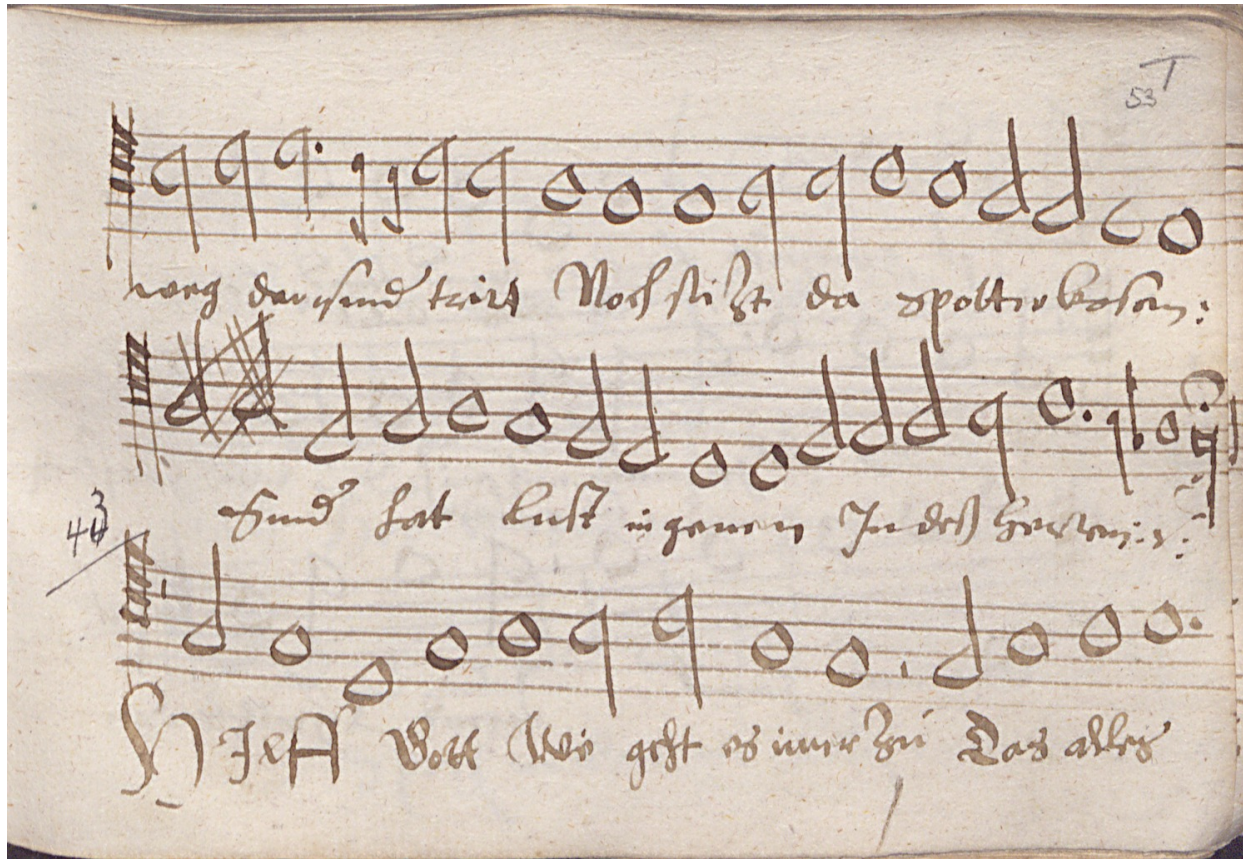 T
53
weg der sünd tritt Noch sitzt da spötter
Sünd hat lust in genen In deß herren :
43
HIlff Gott Wie geht es imer zu Das alles